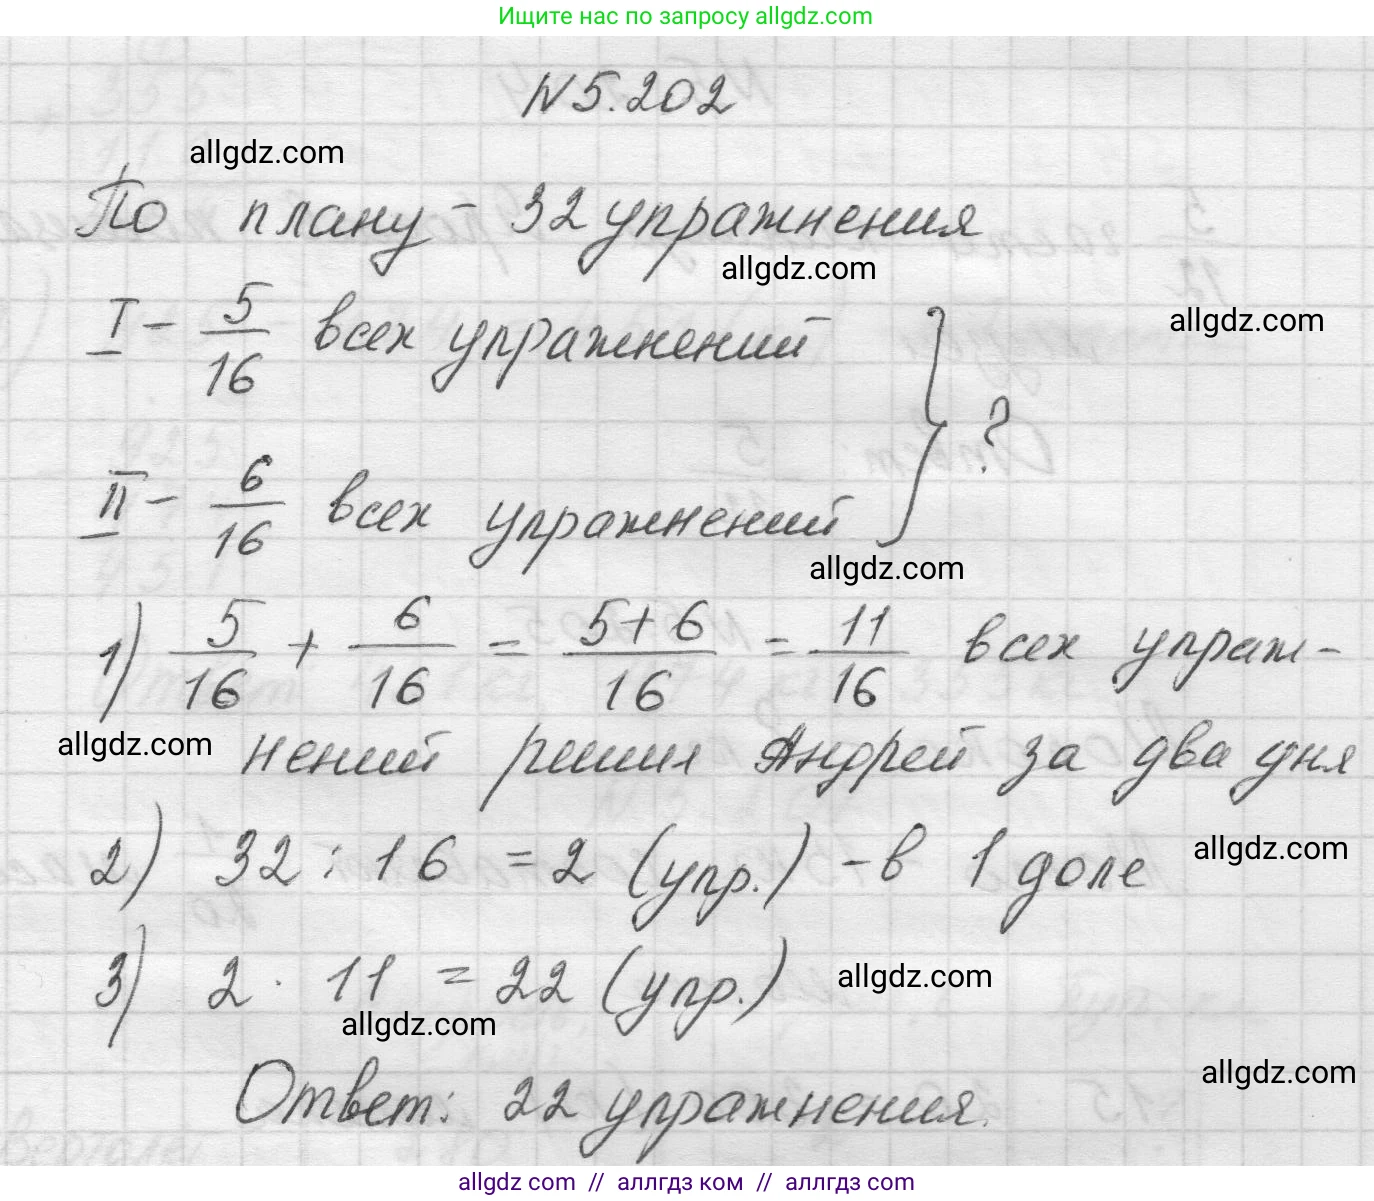 Ищите нас по запросу allgdz.com
N5.202
allgdz.com
По плану - 32 упражнения
allgdz.com
I - 5/16 всех упражнений
allgdz.com
} ?
II - 6/16 всех упражнений
allgdz.com
1) 5/16 + 6/16 = 5+6/16 = 11/16 всех упраж-
allgdz.com
нений решил Андрей за два дня
2) 32 : 16 = 2 (упр.) - в 1 доле
allgdz.com
3) 2 · 11 = 22 (упр.)
allgdz.com
allgdz.com
allgdz.com
Ответ: 22 упражнения.
allgdz.com // аллгдз ком // аллгдз com